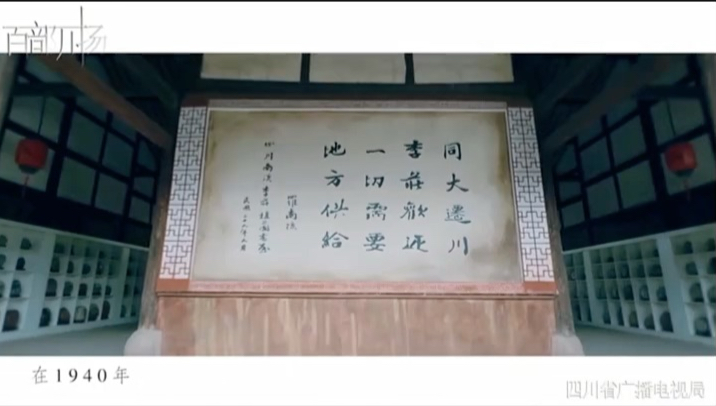 百部川扬
同大遷川
李莊歡迎
一切需要
地方供給
羅南陔
在1940年
四川省广播电视局